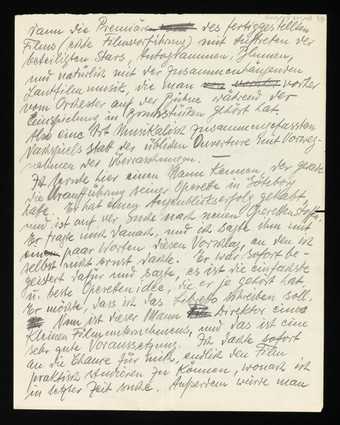 Dann die Premiere des fertiggestellten
Films (echte Filmvorführung) mit Auftreten der
beteiligten Stars, Autogrammen, Blumen,
und natürlich mit der zusammenhängenden
Tonfilmmusik, die man vorher
vom Orchester auf der Bühne während der
Einspielung in Bruchstücken gehört hat.
Also eine Art Musikalisch zusammenfassendes
Nachspiels statt der üblichen Ouverture mit Vorweg-
nahme der Überraschungen.
Ich lernte hier einen Mann kennen, der grade
die Uraufführung seiner Operette in Göteborg
hatte. Er hat einen Publikumserfolg gehabt,
und ist auf der Suche nach neuen Operettenstoffen.
Er fragte mich danach, und ich sagte ihm mit
paar Worten diesen Vorschlag, an den ich
selbst nicht ernst dachte. Er war sofort be-
geistert dafür und sagte, es ist die einfachste
u. beste Operettenidee, die er je gehört hat.
Er möchte, dass ich das Libretto schreiben soll.
Nun ist dieser Mann Direktor eines
kleinen Filmunternehmens, und das ist eine
sehr gute Voraussetzung. Ich dachte sofort
an die Chance für mich, endlich den Film
praktisch studieren zu können, wonach ich
in letzter Zeit suche. Ausserdem würde man